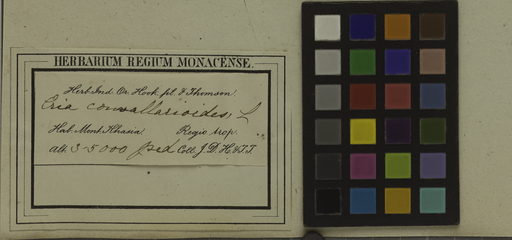 HERBARIUM REGIUM MONACENSE.
Herb. Ind. Or. Hook. fil. & Thomson.
Eria convallarioides, L
Hab. Mont. Khasia. Regio trop.
alt. 3-5000 ped. Coll. J. D. H. & T. T.